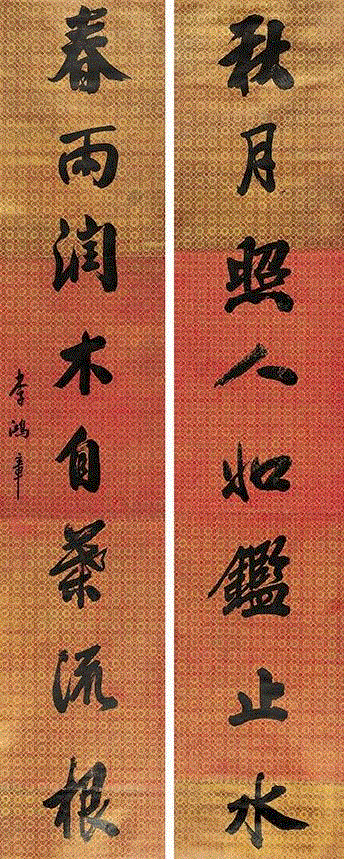 秋月照人如鑑止水
春雨潤木自葉流根
李鴻章